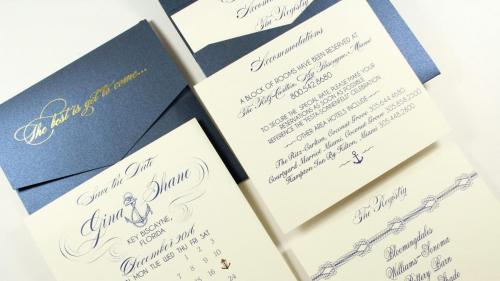 Accommodations
The Registry
The best is yet to come...
Accommodations
A BLOCK OF ROOMS HAVE BEEN RESERVED AT
The Ritz-Carlton, Key Biscayne, Miami
800.542.8680
TO SECURE THE SPECIAL RATE, PLEASE MAKE YOUR
RESERVATIONS AS SOON AS POSSIBLE
REFERENCE THE PESTA-SOMERFELD CELEBRATION
~ OTHER AREA HOTELS INCLUDE ~
The Ritz-Carlton, Coconut Grove 305.644.4680
Courtyard Marriot Miami, Coconut Grove 305.858.2500
Hampton Inn By Hilton, Miami 305.448.2800
Save the Date
Gina Shane
KEY BISCAYNE,
FLORIDA
December 2016
MON TUE WED THU FRI SAT
1 2 3
10
24
The Registry
Bloomingdales
Williams-Sonoma
Pottery Barn